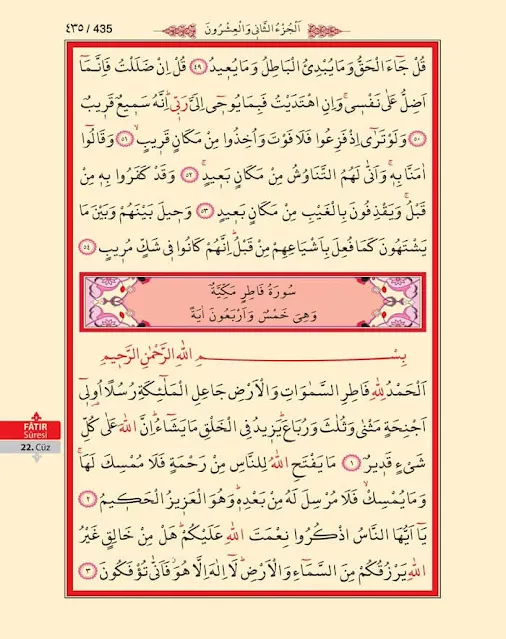 ٤٣٥ / 435
اَلْجُزْءُ الثَّانٖى وَالْعِشْرُونَ
قُلْ جَٓاءَ الْحَقُّ وَمَا يُبْدِئُ الْبَاطِلُ وَمَا يُعٖيدُ ﴿٤٩﴾ قُلْ اِنْ ضَلَلْتُ فَاِنَّمَٓا
اَضِلُّ عَلٰى نَفْسٖى وَاِنِ اهْتَدَيْتُ فَبِمَا يُوحٖٓى اِلَىَّ رَبّٖى اِنَّهُ سَمٖيعٌ قَرٖيبٌ
﴿٥٠﴾ وَلَوْ تَرٰٓى اِذْ فَزِعُوا فَلَا فَوْتَ وَاُخِذُوا مِنْ مَكَانٍ قَرٖيبٍ ﴿٥١﴾ وَقَالُٓوا
اٰمَنَّا بِهٖ وَاَنّٰى لَهُمُ التَّنَاوُشُ مِنْ مَكَانٍ بَعٖيدٍ ﴿٥٢﴾ وَقَدْ كَفَرُوا بِهٖ مِنْ
قَبْلُ وَيَقْذِفُونَ بِالْغَيْبِ مِنْ مَكَانٍ بَعٖيدٍ ﴿٥٣﴾ وَحٖيلَ بَيْنَهُمْ وَبَيْنَ مَا
يَشْتَهُونَ كَمَا فُعِلَ بِاَشْيَاعِهِمْ مِنْ قَبْلُ اِنَّهُمْ كَانُوا فٖى شَكٍّ مُرٖيبٍ ﴿٥٤﴾
سُورَةُ فَاطِرٍ مَكِّيَّةٌ
وَهِىَ خَمْسٌ وَاَرْبَعُونَ اٰيَةً
بِسْمِ اللّٰهِ الرَّحْمٰنِ الرَّحٖيمِ
اَلْحَمْدُ لِلّٰهِ فَاطِرِ السَّمٰوَاتِ وَالْاَرْضِ جَاعِلِ الْمَلٰٓئِكَةِ رُسُلًا اُولٖٓى
اَجْنِحَةٍ مَثْنٰى وَثُلٰثَ وَرُبَاعَ يَزٖيدُ فِى الْخَلْقِ مَا يَشَٓاءُ اِنَّ اللّٰهَ عَلٰى كُلِّ
شَىْءٍ قَدٖيرٌ ﴿١﴾ مَا يَفْتَحِ اللّٰهُ لِلنَّاسِ مِنْ رَحْمَةٍ فَلَا مُمْسِكَ لَهَا
وَمَا يُمْسِكْ فَلَا مُرْسِلَ لَهُ مِنْ بَعْدِهٖ وَهُوَ الْعَزٖيزُ الْحَكٖيمُ ﴿٢﴾
يَٓا اَيُّهَا النَّاسُ اذْكُرُوا نِعْمَتَ اللّٰهِ عَلَيْكُمْ هَلْ مِنْ خَالِقٍ غَيْرُ
اللّٰهِ يَرْزُقُكُمْ مِنَ السَّمَٓاءِ وَالْاَرْضِ لَٓا اِلٰهَ اِلَّا هُوَ فَاَنّٰى تُؤْفَكُونَ ﴿٣﴾
FÂTIR
Sûresi
22. Cüz